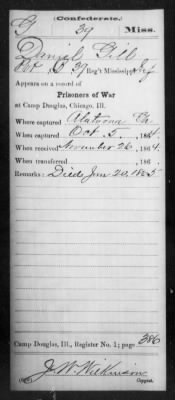 (Confederate.)
G 39 Miss.
Daniel Gill
Pvt Co D, 39 Reg't Mississippi Inf
Appears on a record of
Prisoners of War
at Camp Douglas, Chicago, Ill.
Where captured Alatoona Ga
When captured Oct. 5, 1864.
When received November 26, 1864.
When transferred , 186 .
Remarks: Died Jan 20, 1865
Camp Douglas, Ill., Register No. 1; page 386
J. W. Wilkinson
Copyist.